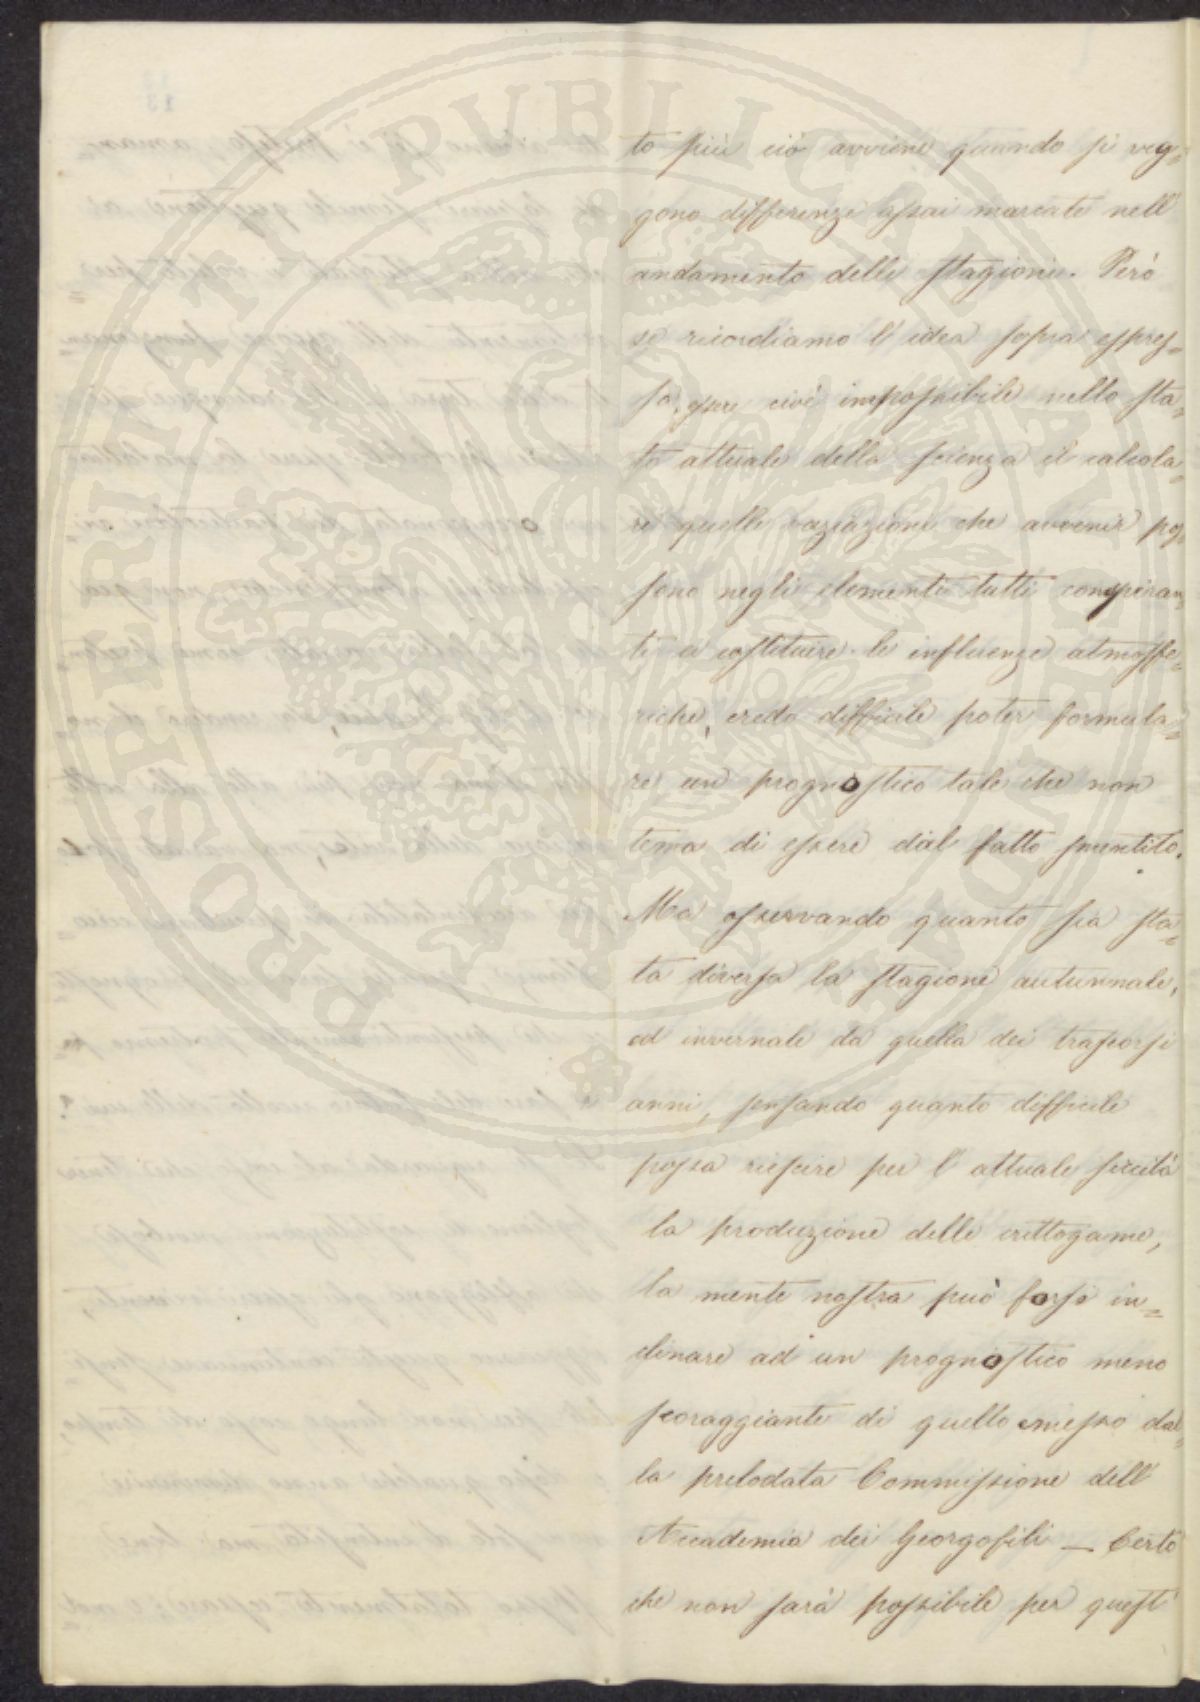 PROSPERITATI PUBLICAE AUGENDAE
to più ciò avviene quando si veg=
gono differenze assai marcate nell'
andamento delle stagioni. Però
se ricordiamo l'idea sopra espres=
sa, essere cioè impossibile nello sta=
to attuale della scienza il calcola=
re quelle variazioni che avvenir pos
sono negli elementi tutti conspiran=
ti a costituire le influenze atmosfe=
riche, credo difficile poter formula=
re un prognostico tale che non
tema di essere dal fatto smentito.
Ma osservando quanto sia sta=
ta diversa la stagione autunnale,
ed invernale da quella dei trascorsi
anni, pensando quanto difficile
possa riescire per l'attuale siccità
la produzione delle crittogame,
la mente nostra può forse in=
clinare ad un prognostico meno
scoraggiante di quello emesso dal=
la prelodata Commissione dell'
Accademia dei Georgofili — Certo
che non sarà possibile per quest'